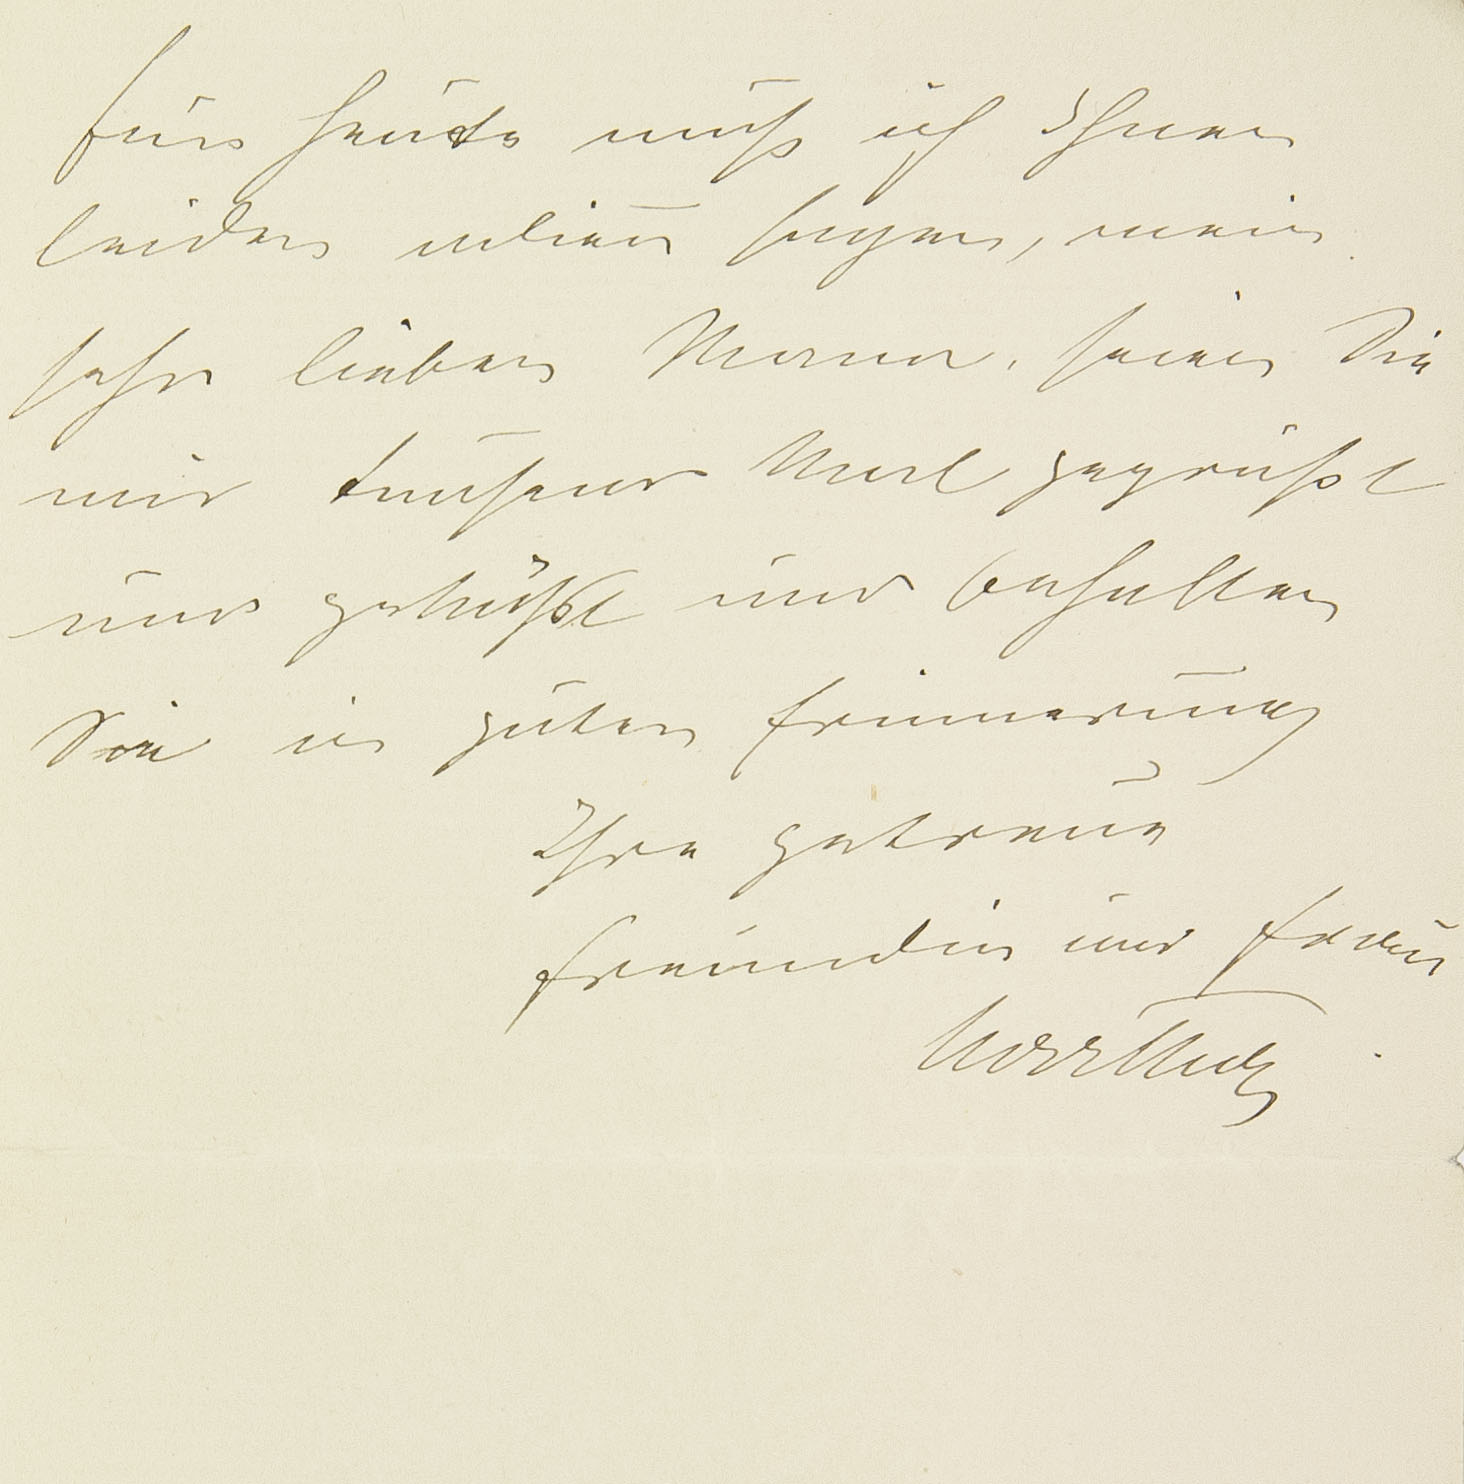 Für heute muß ich Ihnen
leider adieu sagen, mein
sehr lieber Mann, seien Sie
mir tausend Mal gegrüßt
und geküßt und behalten
Sie in guter Erinnerung
Ihre getreue
Freundin und Frau